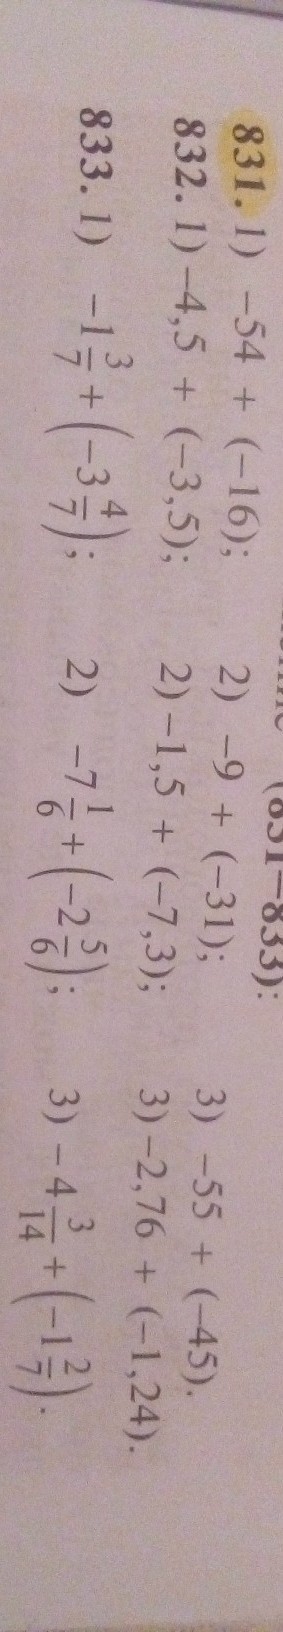 (831–833):
831. 1) –54 + (–16); 2) –9 + (–31); 3) –55 + (–45).
832. 1) –4,5 + (–3,5); 2) –1,5 + (–7,3); 3) –2,76 + (–1,24).
833. 1) –1 3/7 + (–3 4/7); 2) –7 1/6 + (–2 5/6); 3) –4 3/14 + (–1 2/7).